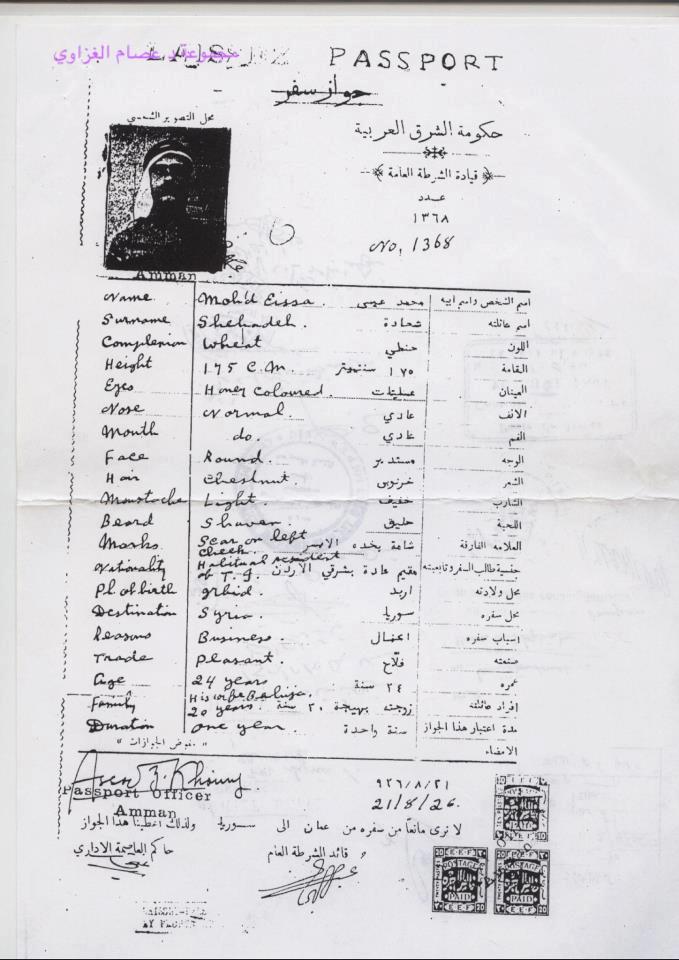 مجموعة د عصام الغزاوي
PASSPORT
جواز سفر
محل التصوير الشمسي
حكومة الشرق العربية
قيادة الشرطة العامة
عدد
١٣٦٨
No, 1368
Amman
Name Moh'd Eissa. محمد عيسى اسم الشخص واسم ابيه
Surname Shehadeh. شحادة اسم عائلته
Complexion Wheat حنطي اللون
Height 175 C.M. ١٧٥ سنتيمتر القامة
Eyes Honey Coloured. العينان
Nose Normal. عادي الانف
Mouth do. عادي الفم
Face Round. مستدير الوجه
Hair Chestnut. خرنوبي الشعر
Moustache Light. خفيف الشارب
Beard Shaven. حليق اللحية
Marks Scar on left cheek. شامة بخده الايسر العلامه الفارقة
Nationality Habitual resident of T. J. مقيم عادة بشرقي الاردن جنسية طالب السفر وتابعيته
Pl of birth Irbid. اربد محل ولادته
Destination Syria. سوريا محل سفره
Reasons Business. اسباب سفره
Trade Pleasant. فلّاح صنعته
Age 24 years ٢٤ سنة عمره
Family His wife Bahija. 20 years. زوجته بهيجة ٢٠ سنة افراد عائلته
Duration one year. سنة واحدة مدة اعتبار هذا الجواز
« مفوض الجوازات » الامضاء
٩٢٦/٨/٢١
Passport Officer 21/8/26.
Amman
لا نرى مانعاً من سفره من عمان الى سوريا ولذلك اعطيناه هذا الجواز
قائد الشرطة العام حاكم العاصمة الاداري
E.E.F
POSTAGE
PAID
20 E.E.F 20
E.E.F
POSTAGE
PAID
E.E.F 20